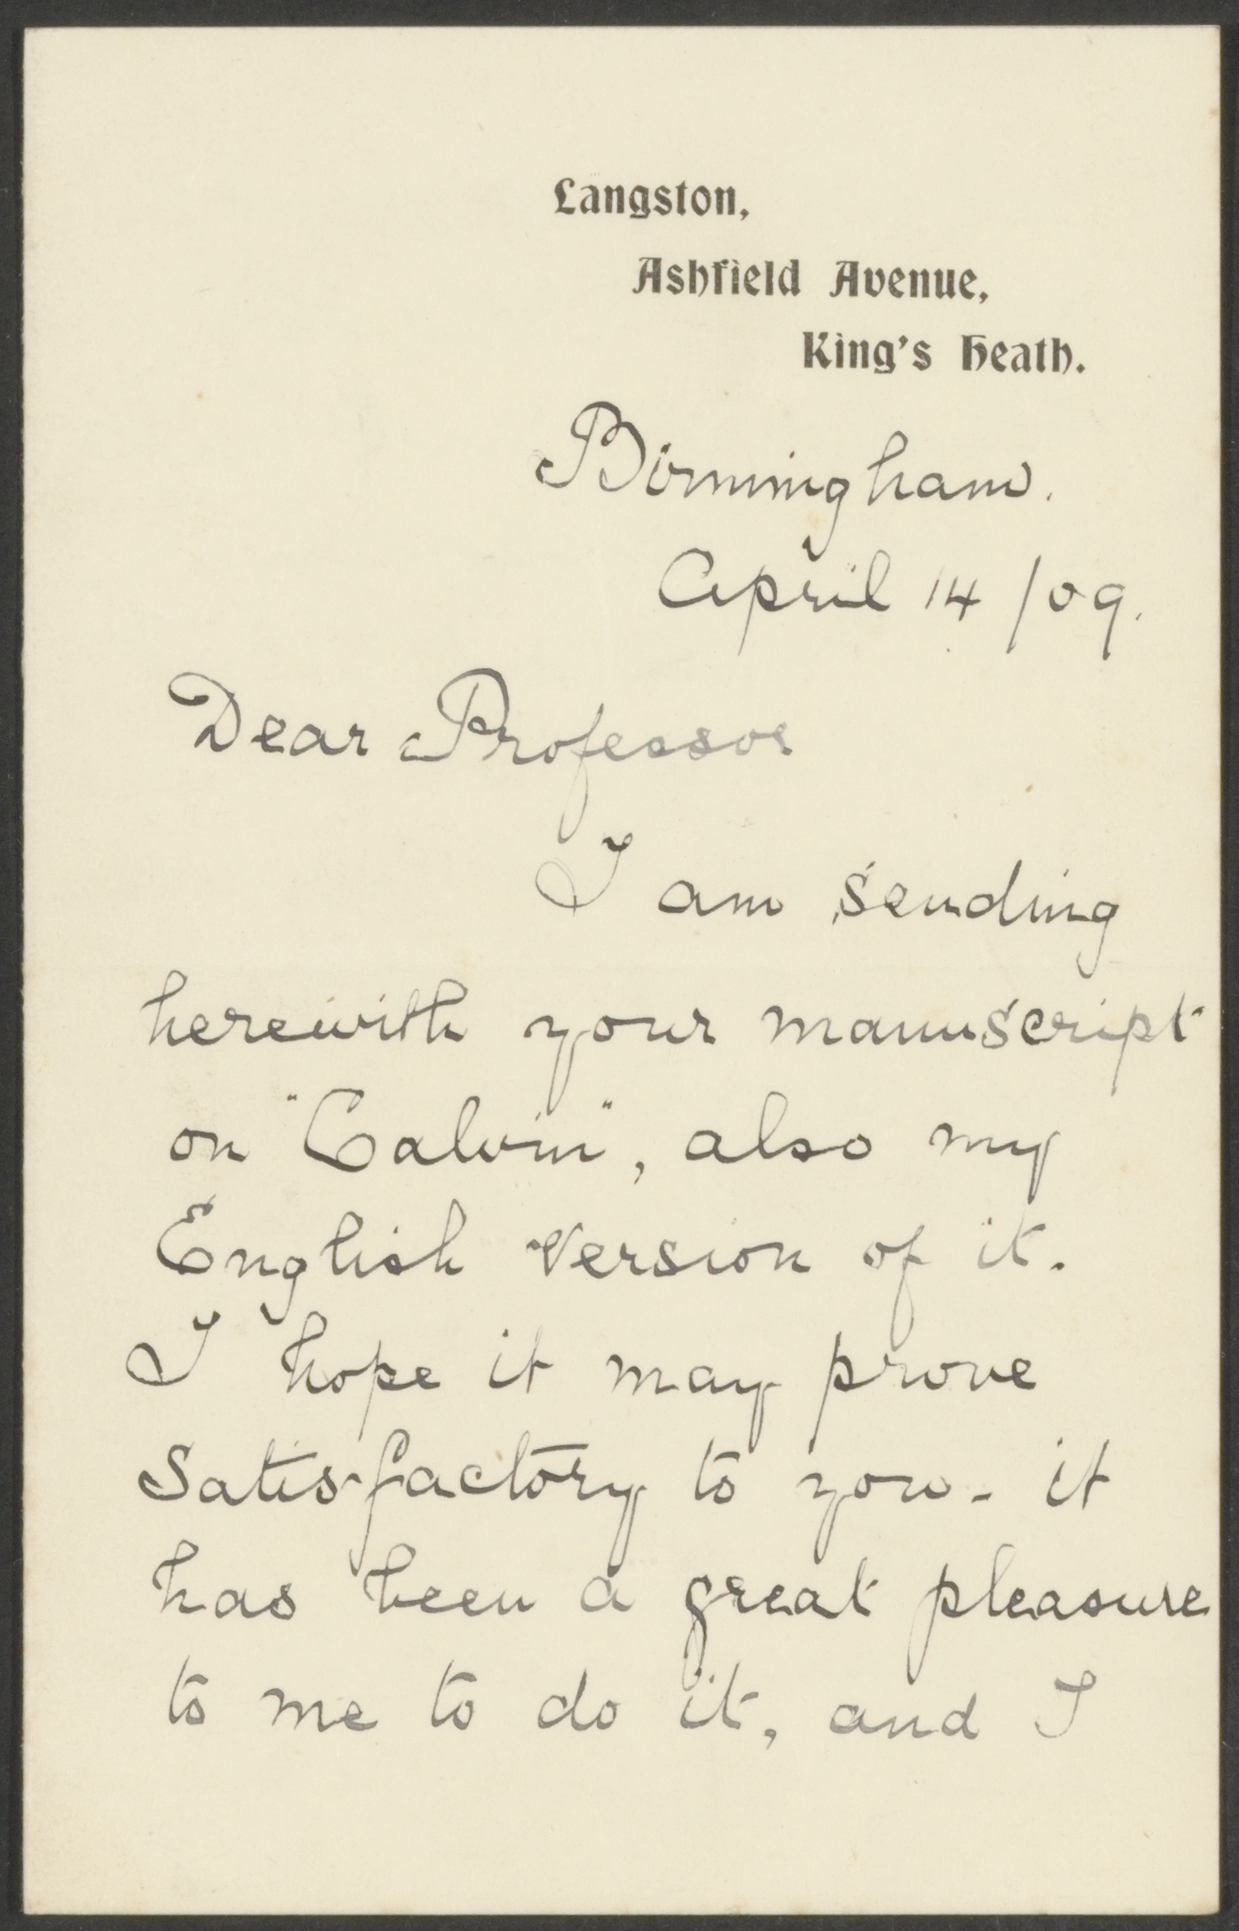 Langston,
Ashfield Avenue,
King's Heath.
Birmingham.
April 14/09.
Dear Professor
I am sending
herewith your manuscript
on "Calvin", also my
English version of it.
I hope it may prove
satisfactory to you - it
has been a great pleasure
to me to do it, and I